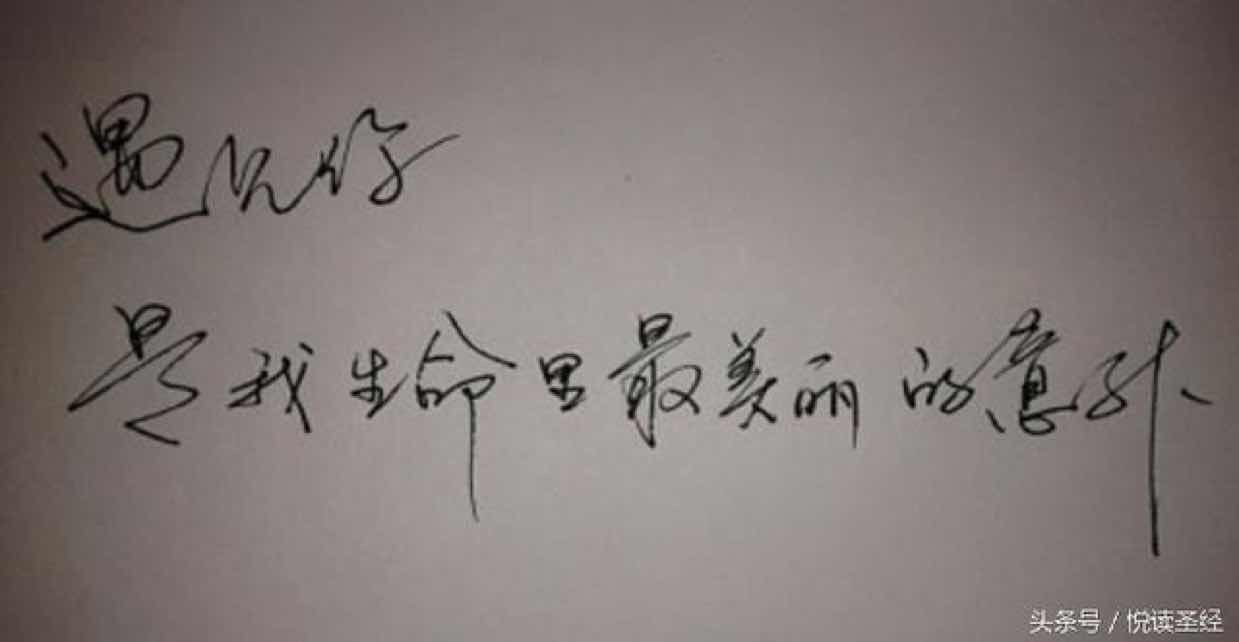 遇见你
是我生命里最美丽的意外
头条号 / 悦读圣经